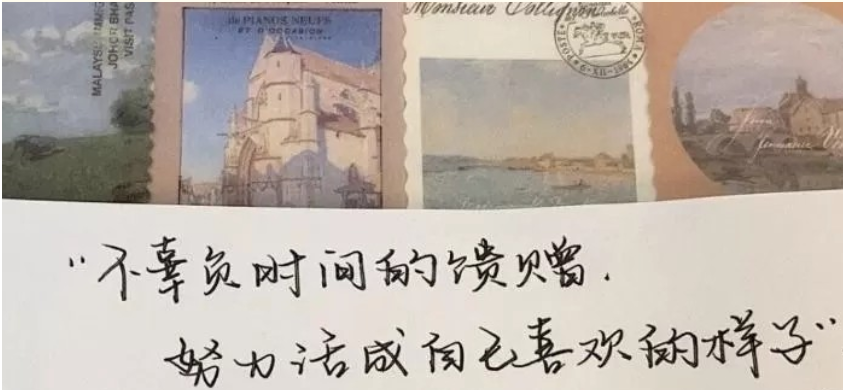 MALAYSIA
JOHOR BHA
VISIT PAS
de PIANOS NEUFS
ET D'OCCASION
Monsieur
POSTE ROMA
6-XII-1961
“不辜负时间的馈赠.
努力活成自己喜欢的样子”